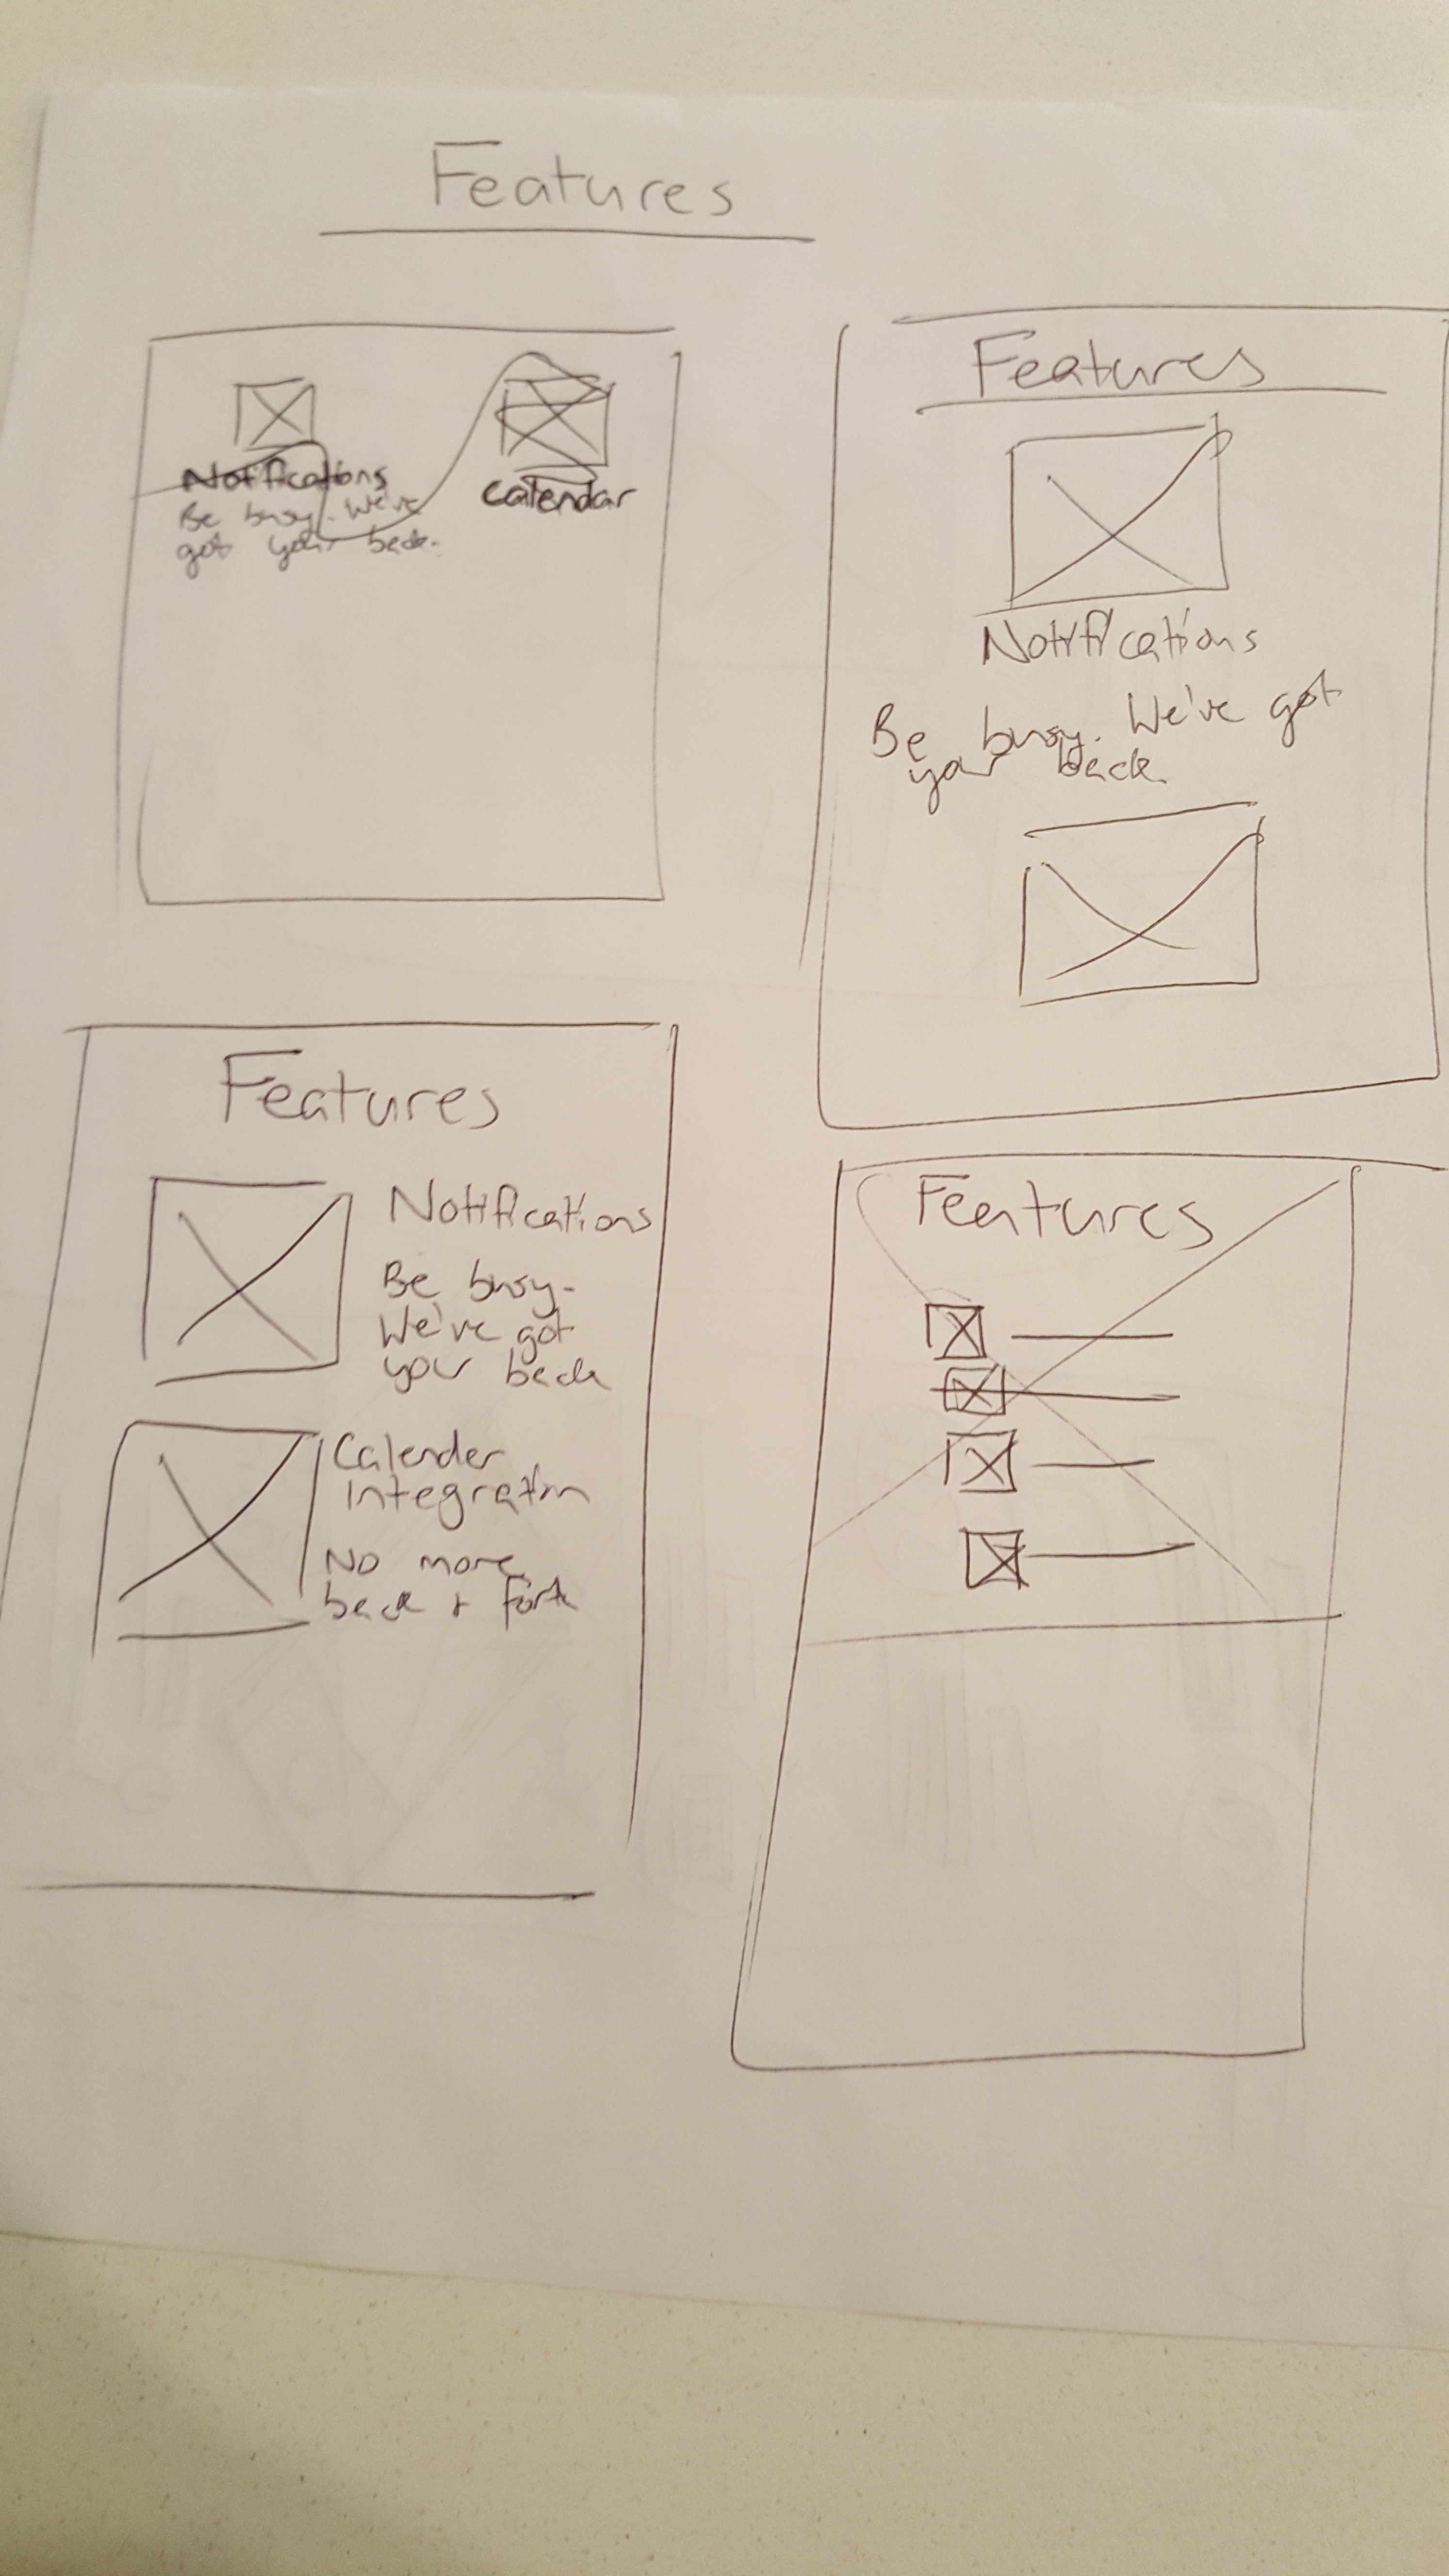 Features
Notifications
Be busy. We've
got your back.
Calendar
Features
Notifications
Be busy. We've got
your back.
Features
Notifications
Be busy.
We've got
your back
Calender
Integration
No more
back + forth
Features